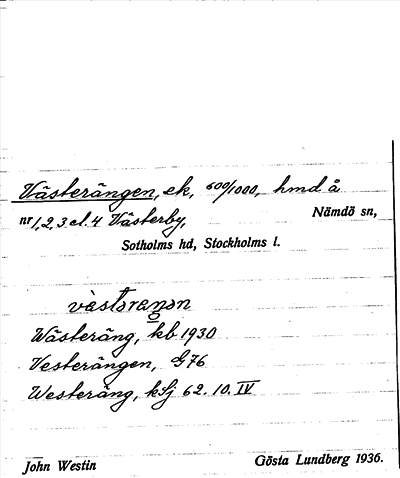 Västerängen, ek, 600/1000, hmd å
nr 1, 2, 3 el. 4 Västerby,
Nämdö sn,
Sotholms hd, Stockholms l.
Wästeräng, kb 1930
Vesterängen, G76
Westeräng, kSj 62. 10. IV
John Westin
Gösta Lundberg 1936.